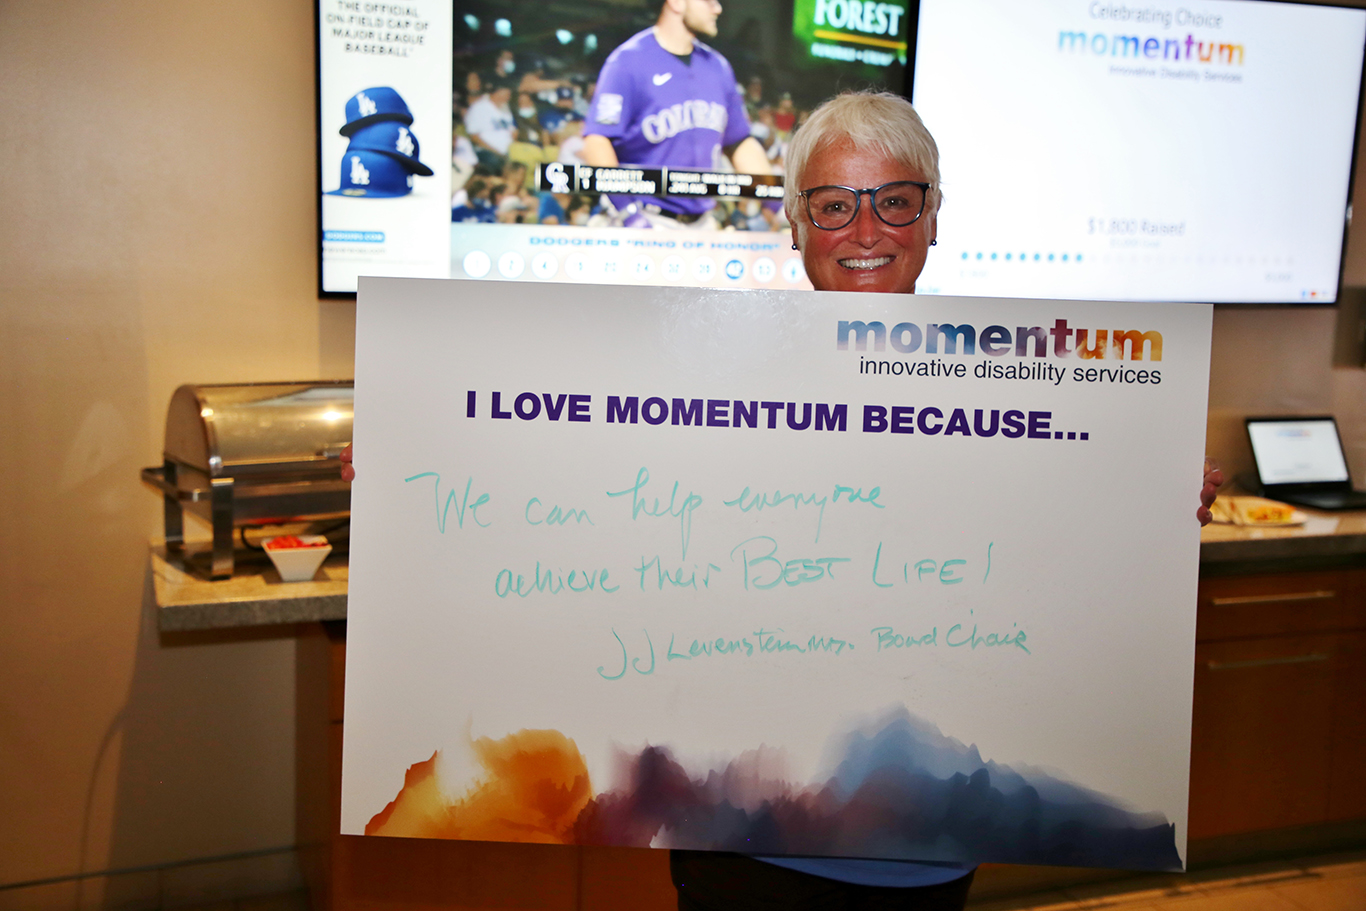 THE OFFICIAL
ON-FIELD CAP OF
MAJOR LEAGUE
BASEBALL
FOREST
COLORADO
DODGERS "RING OF HONOR"
Celebrating Choice
momentum
Innovative Disability Services
$1,800 Raised
momentum
innovative disability services
I LOVE MOMENTUM BECAUSE...
We can help everyone
achieve their BEST LIFE!
JJ Levenstein, Board Chair